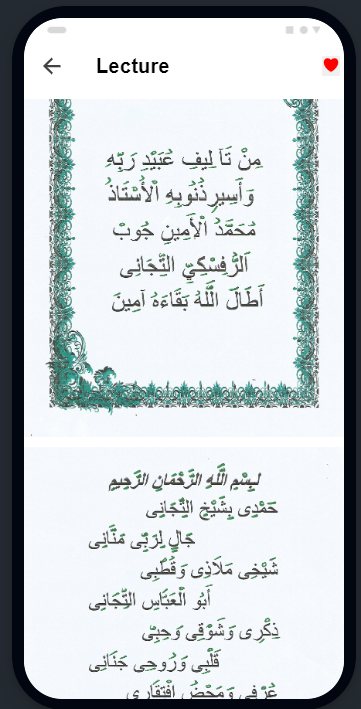 Lecture
مِنْ تَآلِيفِ عُبَيْدِ رَبِّهِ
وَأَسِيرِ ذُنُوبِهِ الْأُسْتَاذُ
مُحَمَّدُ الْأَمِينِ جُوبْ
اَلرُّفِسْكِيِّ التِّجَانِى
أَطَالَ اللَّهُ بَقَاءَهُ آمِينَ
بِسْمِ اللَّهِ الرَّحْمَانِ الرَّحِيمِ
حَمْدِى بِشَيْخِ التِّجَانِى
جَالٍ لِرَبِّى مَنَّانِى
شَيْخِى مَلَاذِى وَقُطْبِى
أَبُو الْعَبَّاسِ التِّجَانِى
ذِكْرِى وَشَوْقِى وَحِبِّى
قَلْبِى وَرُوحِى جَنَانِى
عُرْفِى وَمَحْضُ افْتِقَارِى